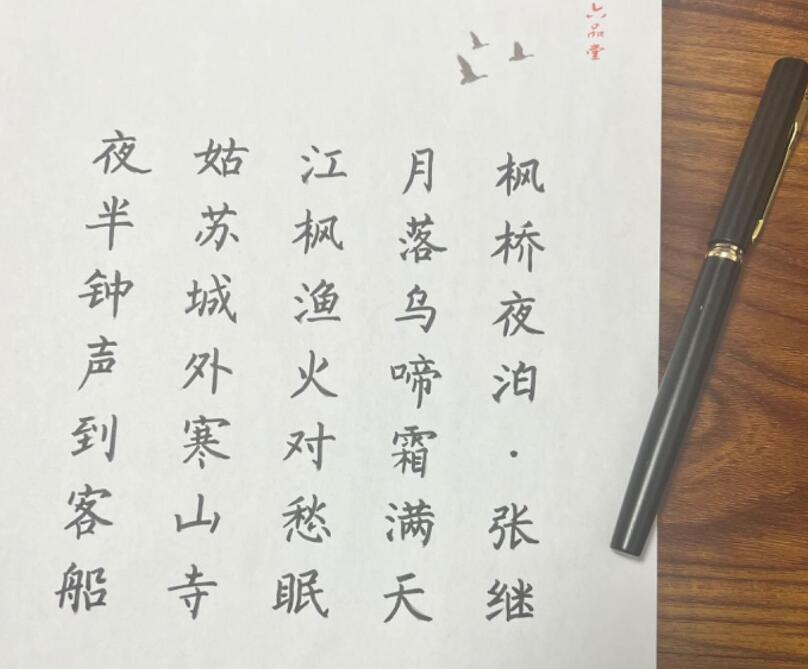 六品堂
枫桥夜泊·张继
月落乌啼霜满天
江枫渔火对愁眠
姑苏城外寒山寺
夜半钟声到客船